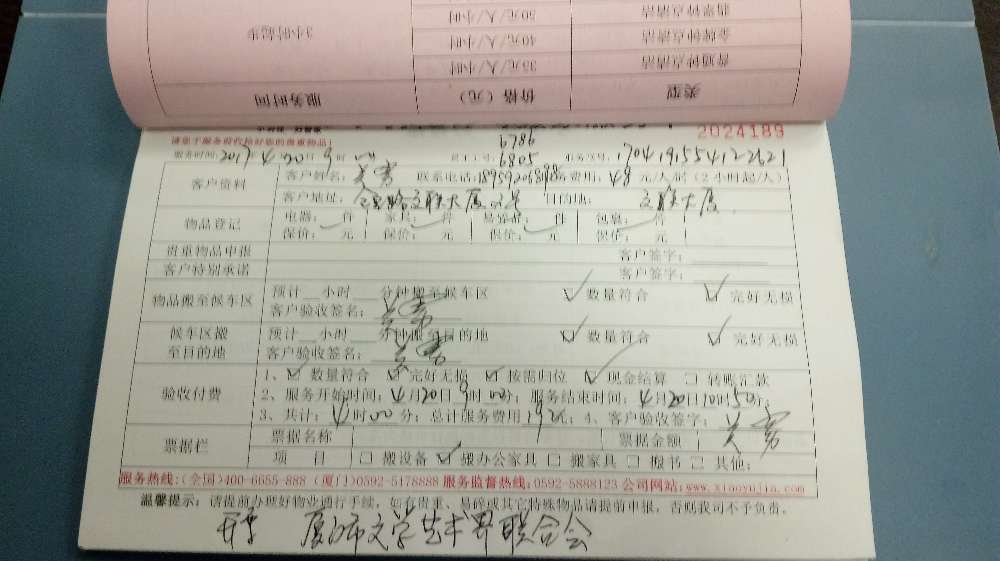 翡翠钟点清洁 50元/人/小时
金牌钟点清洁 40元/人/小时 3小时起步
普通钟点清洁 35元/人/小时
类型 价格（元） 服务时间
2024189
请您于服务前收检好您的贵重物品!
6786
服务时间: 2017年4月20日9时 员工工号: 6805 业务号:
客户资料 客户姓名: 联系电话: 费用: 48 元/人/时 (2小时起/人)
客户地址: 文联大厦 目的地: 文联大厦
物品登记 电器: 件 家具: 件 易碎品: 件 包裹: 件
保价: 元 保价: 元 保价: 元 保价: 元
贵重物品申报 客户签字:
客户特别承诺 客户签字:
物品搬至候车区 预计__小时__分钟搬至候车区 ☑数量符合 ☑完好无损
客户验收签名:
候车区搬至目的地 预计__小时__分钟搬至目的地 ☑数量符合 ☑完好无损
客户验收签名:
验收付费 1、☑数量符合 ☑完好无损 ☑按需归位 ☑现金结算 □转账汇款
2、服务开始时间: 4月20日9时00分; 服务结束时间: 4月20日10时50分;
3、共计: 4时00分; 总计服务费用192元; 4、客户验收签字:
票据栏 票据名称 票据金额
项 目 □搬设备 ☑搬办公家具 □搬家具 □搬书 □其他:
服务热线:(全国)400-6655-888 (厦门)0592-5178888 服务监督热线:0592-5888123 公司网站:www.xiaoyujin.com
温馨提示: 请提前办理好物业通行手续, 如有贵重、易碎或其它特殊物品请提前申报, 否则我司不予负责。
开票 厦门市文学艺术界联合会